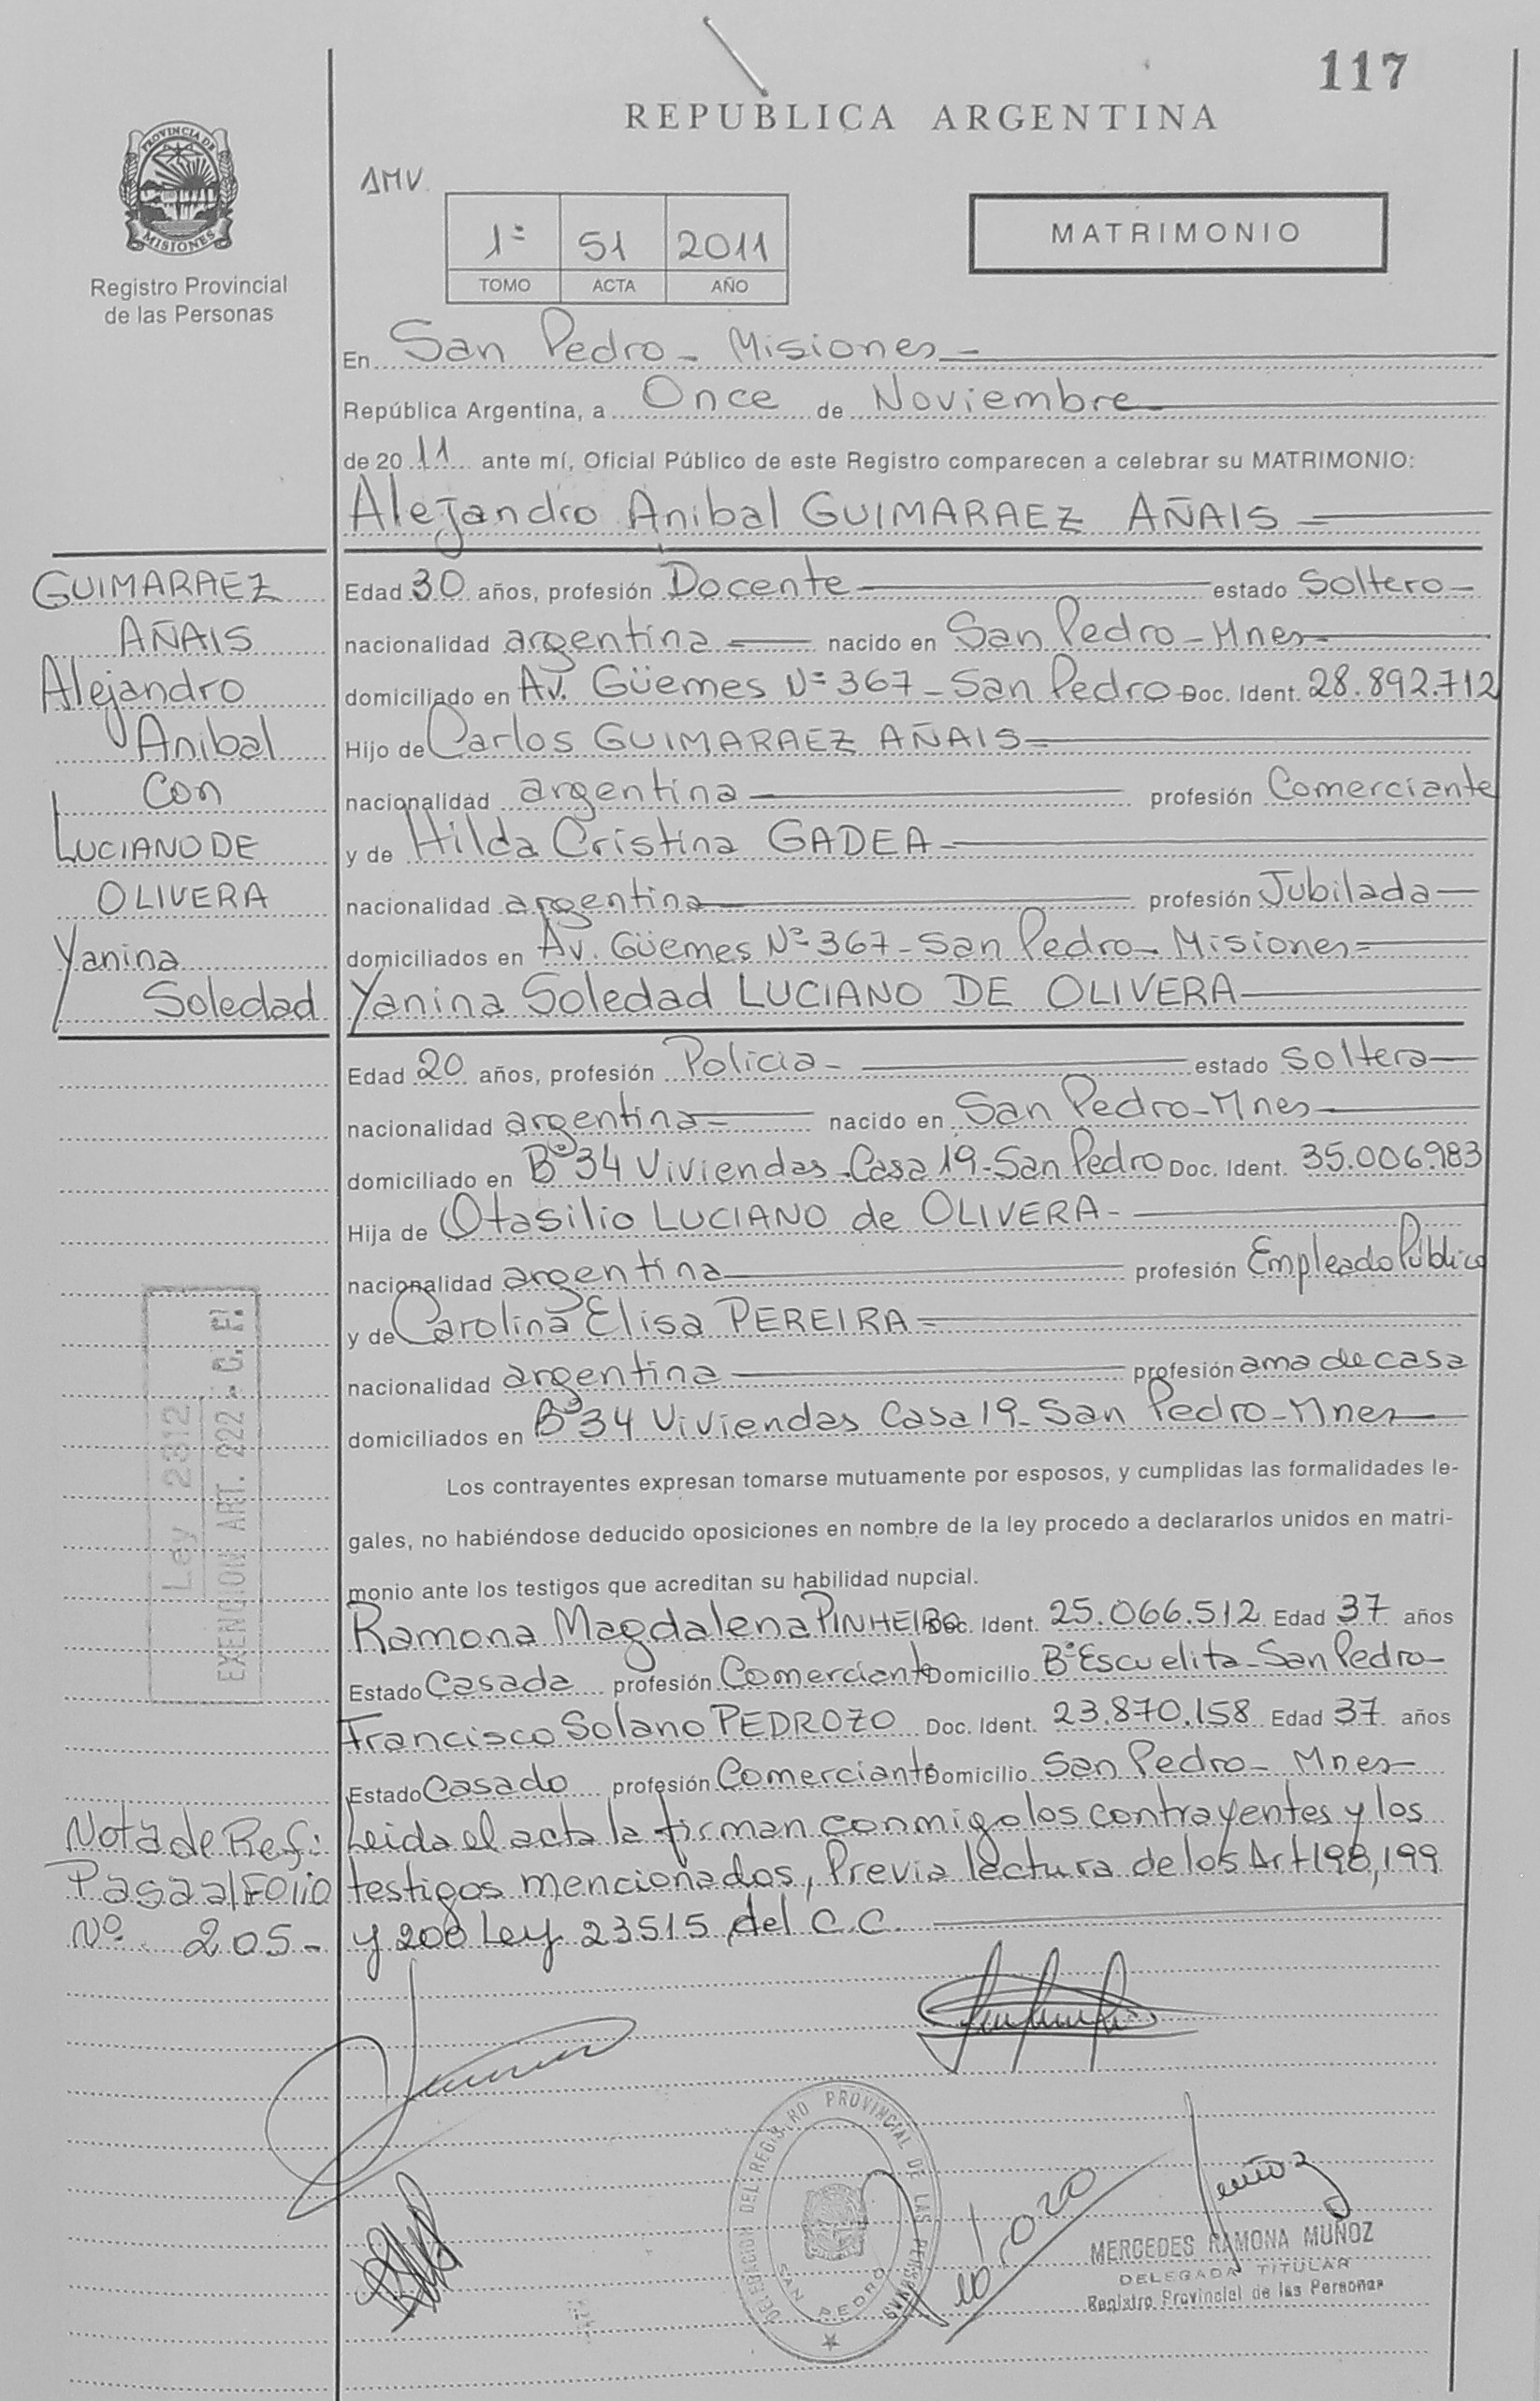 117
REPUBLICA ARGENTINA
PROVINCIA DE
MISIONES
Registro Provincial
de las Personas
AMV.
1º 51 2011
TOMO ACTA AÑO
MATRIMONIO
En San Pedro - Misiones
República Argentina, a Once de Noviembre
de 2011 ante mí, Oficial Público de este Registro comparecen a celebrar su MATRIMONIO:
Alejandro Anibal GUIMARAEZ AÑAIS
GUIMARAEZ
AÑAIS
Alejandro
Anibal
Con
LUCIANO DE
OLIVERA
Yanina
Soledad
Edad 30 años, profesión Docente estado Soltero
nacionalidad argentina nacido en San Pedro - Mnes
domiciliado en Av. Güemes Nº 367 - San Pedro Doc. Ident. 28.892.712
Hijo de Carlos GUIMARAEZ AÑAIS
nacionalidad argentina profesión Comerciante
y de Hilda Cristina GADEA
nacionalidad argentina profesión Jubilada
domiciliados en Av. Güemes Nº 367 - San Pedro - Misiones
Yanina Soledad LUCIANO DE OLIVERA
Edad 20 años, profesión Policia estado Soltera
nacionalidad argentina nacido en San Pedro - Mnes
domiciliado en Bº 34 Viviendas - Casa 19 - San Pedro Doc. Ident. 35.006.983
Hija de Otasilio LUCIANO de OLIVERA
nacionalidad argentina profesión Empleado Público
y de Carolina Elisa PEREIRA
nacionalidad argentina profesión ama de casa
domiciliados en Bº 34 Viviendas Casa 19 - San Pedro - Mnes
Los contrayentes expresan tomarse mutuamente por esposos, y cumplidas las formalidades le-
gales, no habiéndose deducido oposiciones en nombre de la ley procedo a declararlos unidos en matri-
monio ante los testigos que acreditan su habilidad nupcial.
Ramona Magdalena PINHEIRO Doc. Ident. 25.066.512 Edad 37 años
Estado Casada profesión Comerciante Domicilio Bº Escuelita - San Pedro
Francisco Solano PEDROZO Doc. Ident. 23.870.158 Edad 37 años
Estado Casado profesión Comerciante Domicilio San Pedro - Mnes
Leida el acta la firman conmigo los contrayentes y los
testigos mencionados, Previa lectura de los Art 198, 199
y 200 Ley 23515 del C.C.
Ley 2312
EXENCION ART. 222 - C. F.
Nota de Ref:
Pasa al Folio
Nº 205 -
DELEGACION DEL REGISTRO PROVINCIAL DE LAS PERSONAS
SAN PEDRO
MERCEDES RAMONA MUÑOZ
DELEGADA TITULAR
Registro Provincial de las Personas